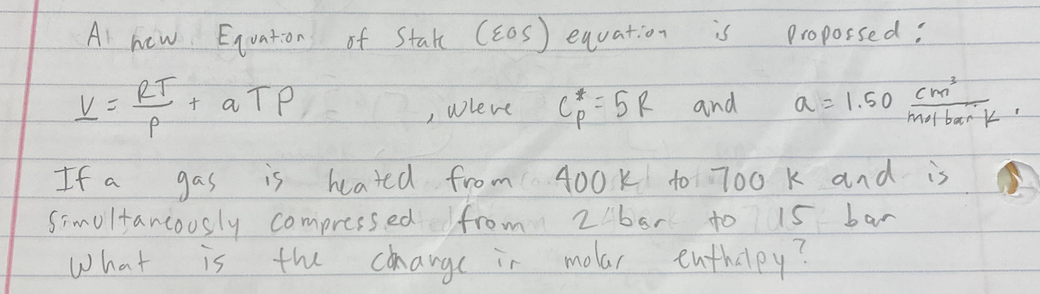 A new Equation of State (EOS) equation is propossed:
V = RT/P + aTP , where Cp* = 5R and a = 1.50 cm³/mol bar K.
If a gas is heated from 400 K to 700 K and is
simultaneously compressed from 2 bar to 15 bar
What is the change in molar enthalpy?